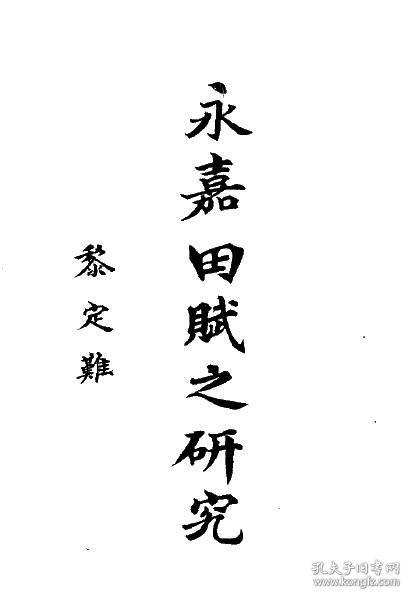 永嘉田賦之研究
黎定難
孔夫子旧书网
www.kongfz.com